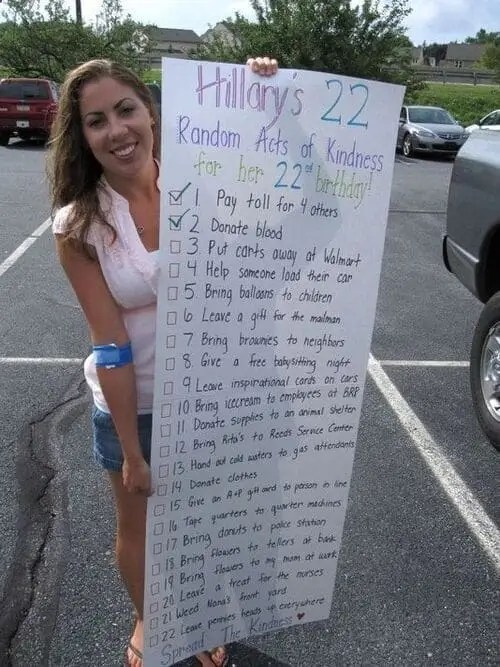 Hillary's 22
Random Acts of Kindness
for her 22nd birthday!
1. Pay toll for 4 others
2 Donate blood
3. Put carts away at Walmart
4 Help someone load their car
5 Bring balloons to children
6 Leave a gift for the mailman
7 Bring brownies to neighbors
8. Give a free babysitting night
9 Leave inspirational cards on cars
10. Bring icecream to employees at BRP
11. Donate supplies to an animal shelter
12 Bring Rita's to Reeds Service Center
13. Hand out cold waters to gas attendants
14 Donate clothes
15 Give an A+P gift card to person in line
16 Tape quarters to quarter machines
17 Bring donuts to police station
18 Bring flowers to tellers at bank
19 Bring flowers to my mom at work
20 Leave a treat for the nurses
21 Weed Nana's front yard
22 Leave pennies heads up everywhere
Spread The Kindness ♥